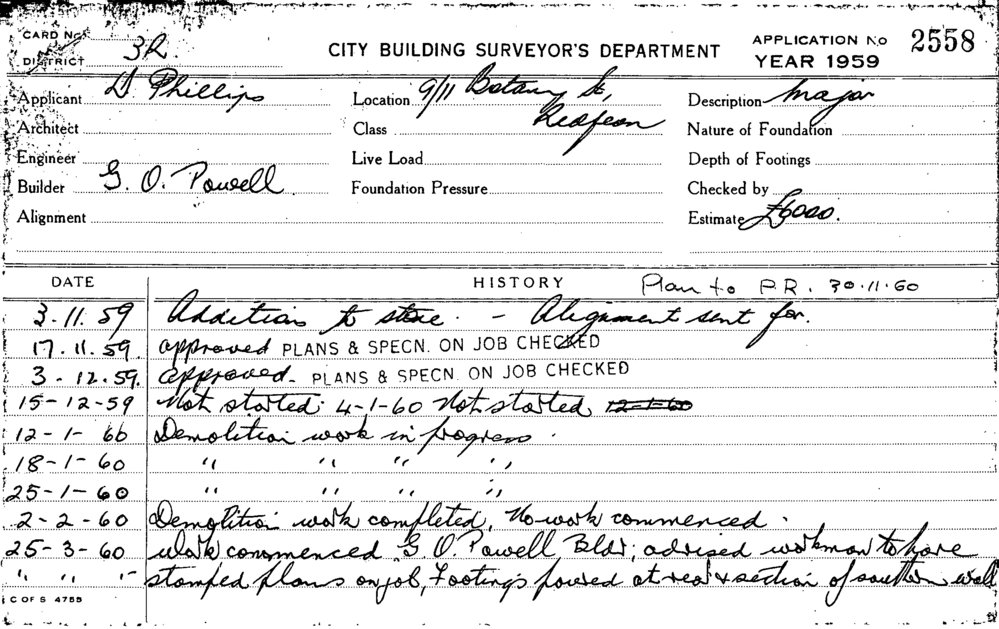 CARD No.
DISTRICT 3R
CITY BUILDING SURVEYOR'S DEPARTMENT
APPLICATION No 2558
YEAR 1959
Applicant D. Phillips
Location 9/11 Botany St,
Redfern
Description Major
Architect
Class
Nature of Foundation
Engineer
Live Load
Depth of Footings
Builder G. O. Powell
Foundation Pressure
Checked by
Alignment
Estimate £6000.
DATE HISTORY Plan to P.R. 30.11.60
3.11.59 Addition to store. - Alignment sent for.
17.11.59. approved PLANS & SPECN. ON JOB CHECKED
3-12.59. approved- PLANS & SPECN. ON JOB CHECKED
15-12-59 Not started: 4-1-60 Not started 12-1-60
12-1-60 Demolition work in progress.
18-1-60 " " " "
25-1-60 " " " "
2-2-60 Demolition work completed, No work commenced.
25-3-60 Work commenced G. O. Powell Bldr; advised workman to have
" " " stamped plans on job, Footings poured at rear & section of southern wall
C OF S 4755